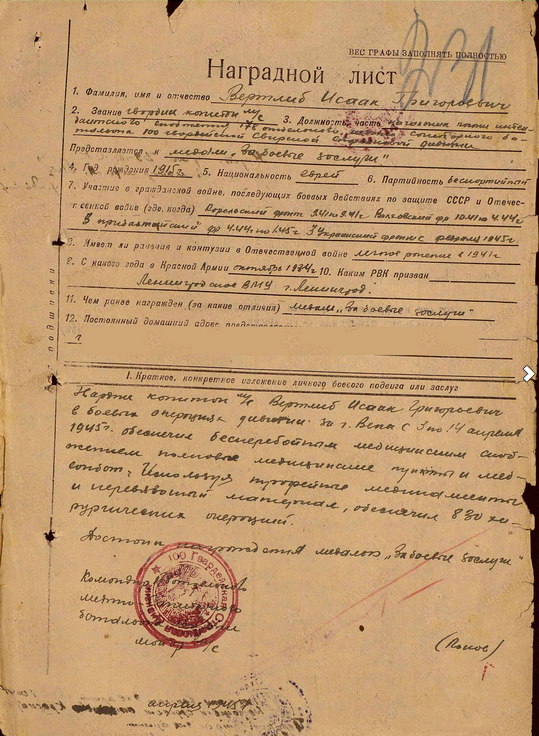 ВЕС ГРАФЫ ЗАПОЛНЯТЬ ПОЛНОСТЬЮ
Наградной лист
1. Фамилия, имя и отчество Вертлиб Исаак Григорьевич
2. Звание гвардии капитан м/с 3. Должность, часть начальник
178 отдельного санитарного ба-
тальона 100 гвардейской Свирской Стрелковой дивизии
Представляется к медали "За боевые заслуги"
4. Год рождения 1915 г. 5. Национальность еврей 6. Партийность беспартийный
7. Участие в гражданской войне, последующих боевых действиях по защите СССР и Отечес-
твенной войне (где, когда) Карельский фронт 9.41 Волховский фр 10.41 по 4.44 г
В 4.44 по 1.45 г 3 Украинский фронт с февраля 1945 г
8. Имеет ли ранения и контузии в Отечественной войне легкое ранение в 1941 г
9. С какого года в Красной Армии октября 1934 10. Каким РВК призван
Ленинградское ВМУ г. Ленинград.
11. Чем ранее награжден (за какие отличия) медаль "За боевые заслуги"
12. Постоянный домашний адрес
г
1. Краткое, конкретное изложение личного боевого подвига или заслуг
капитан м/с Вертлиб Исаак Григорьевич
в боевых операциях дивизии за г. Вена с 3 по 14 апреля
1945 г. обеспечил бесперебойным медицинским снаб-
жением полковые медицинские пункты и мед-
санбат. Используя трофейные медикаменты
и перевязочный материал, обеспечил 830 хи-
рургических операций.
Достоин награждения медалью "За боевые заслуги"
Командир отдельного
медико санитарного
батальона
майор м/с
(Попов)
100 Гвардейская Стрелковая Дивизия
апреля 1945 г